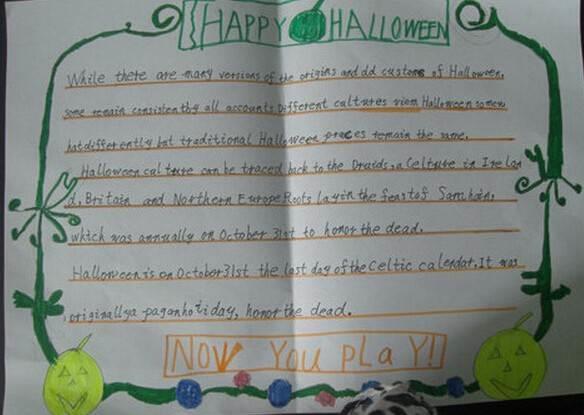 HAPPY HALLOWEEN
While there are many versions of the origins and dd customs of Halloween,
some remain consistentby all accounts. Different cultures view Halloween somew
hat differently but traditional Halloween praces remain the same.
Halloween culture can be traced back to the Druids, a Celture in Irelan
d, Britain and Northern Europe Roots layin the feast of Samhain,
which was annually on October 31st to honor the dead.
Halloween is on October31st the last day of the Celtic calendar. It was
originally a pagan holiday, honor the dead.
Now You PlaY!